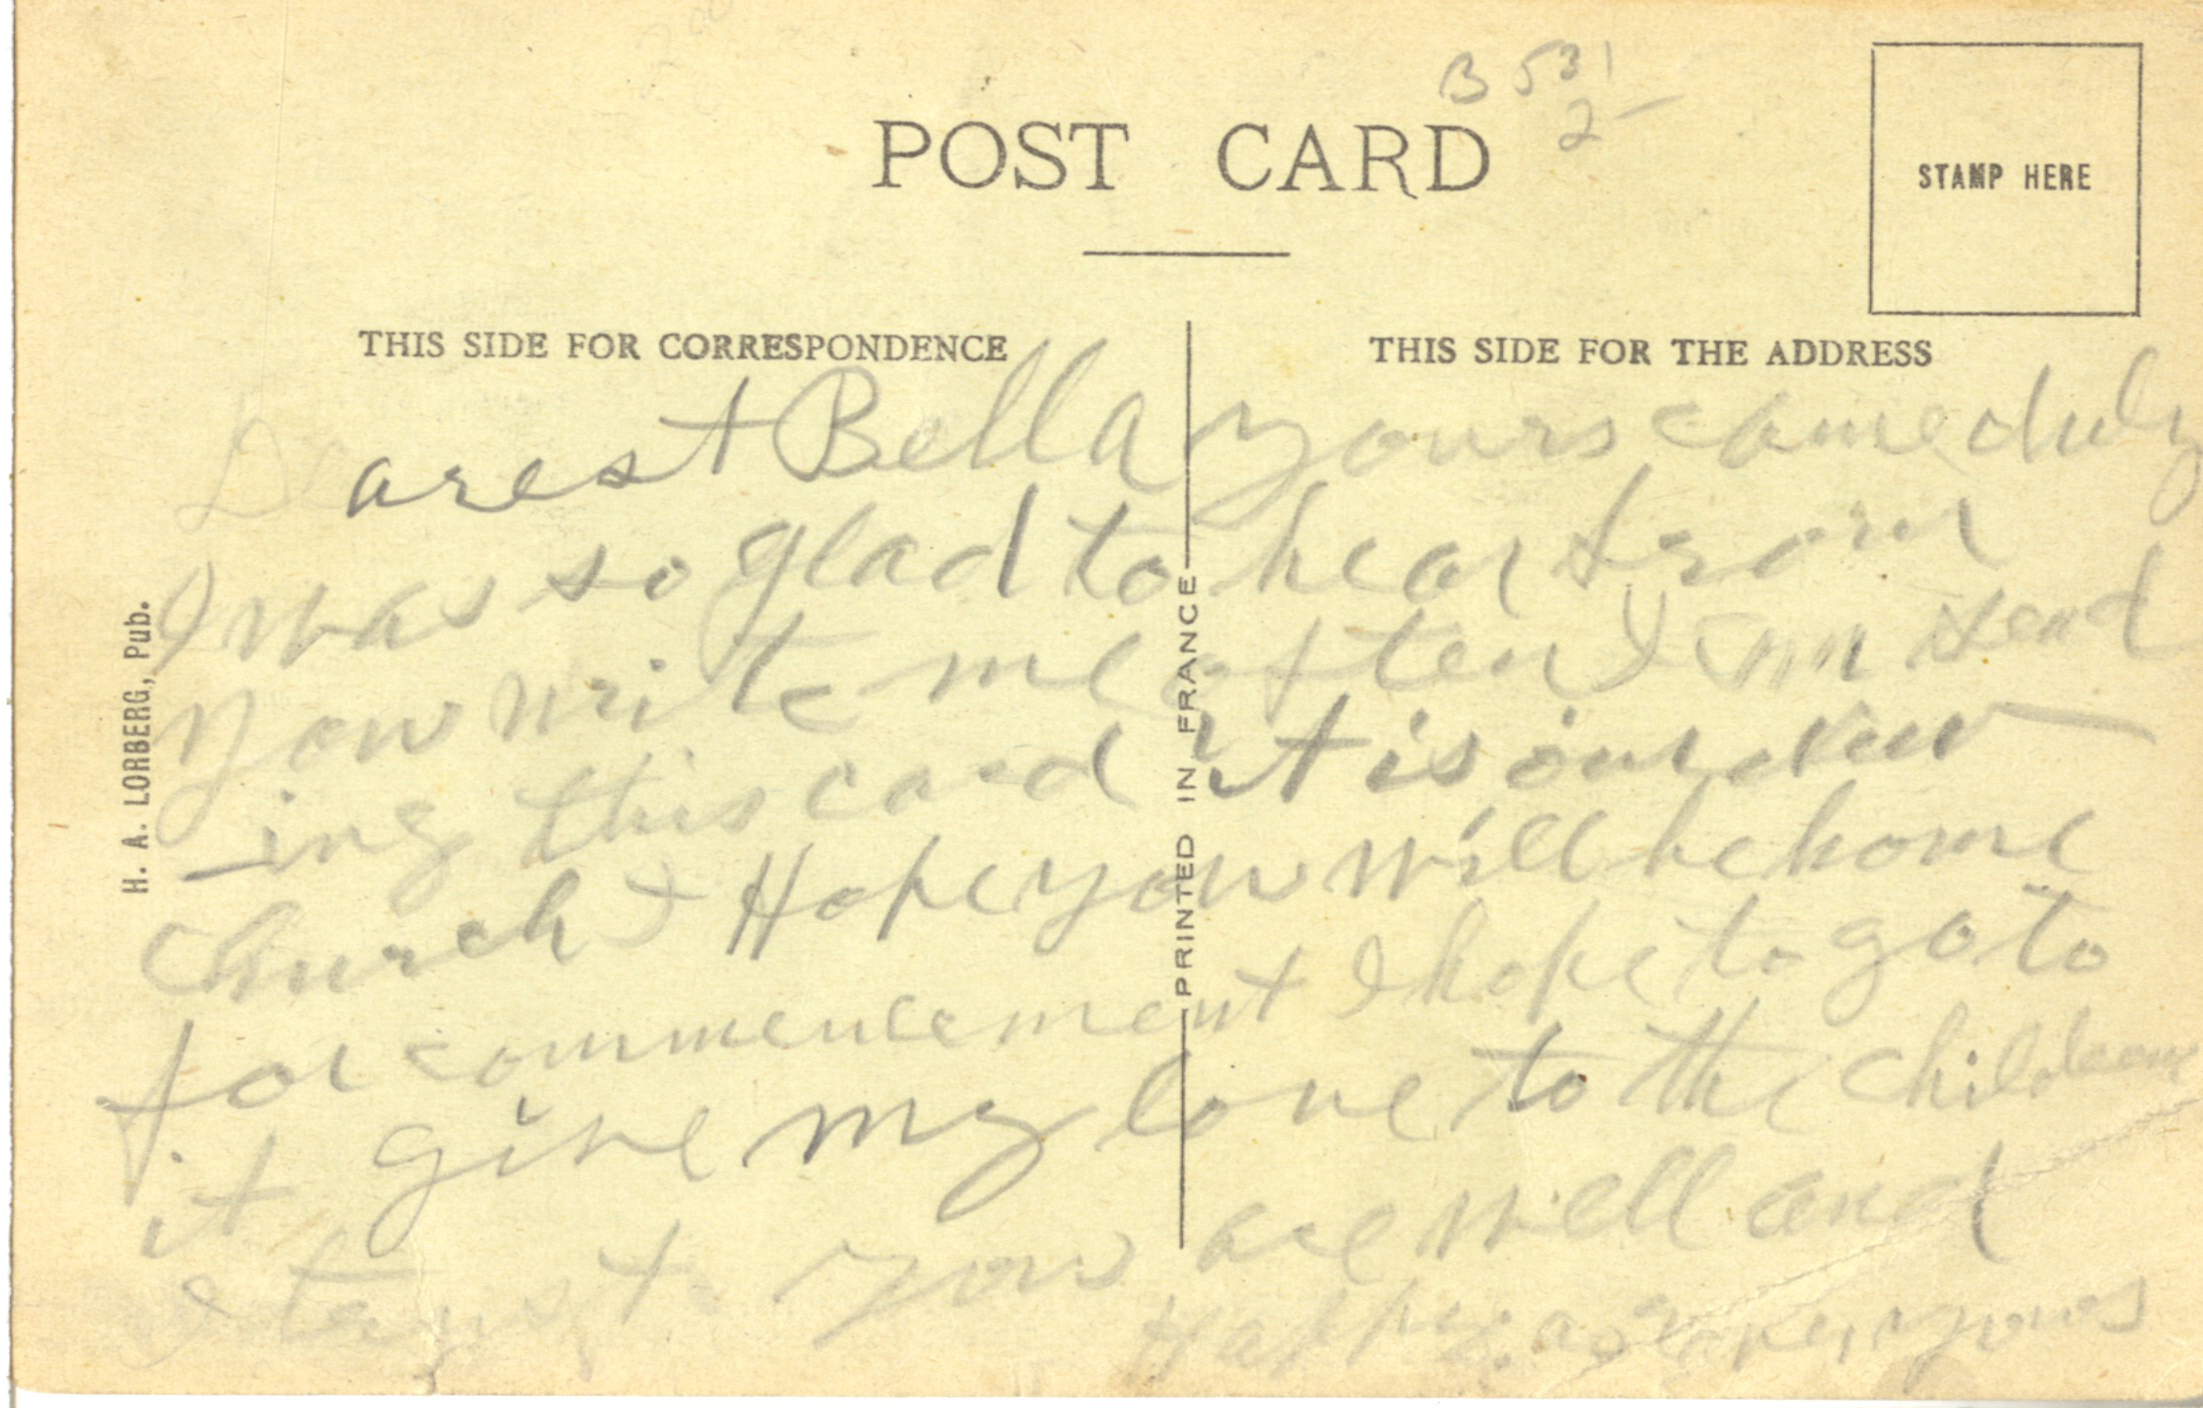 B 531
2-
POST CARD
STAMP HERE
THIS SIDE FOR CORRESPONDENCE
THIS SIDE FOR THE ADDRESS
H. A. LORBERG, Pub.
PRINTED IN FRANCE
Dearest Bella yours came duly
I was so glad to hear from
you write me often I am send
-ing this card it is our new
church I Hope you will be home
for commencement I hope to go to
it give my love to the children
I trust you are well and
Happy yours